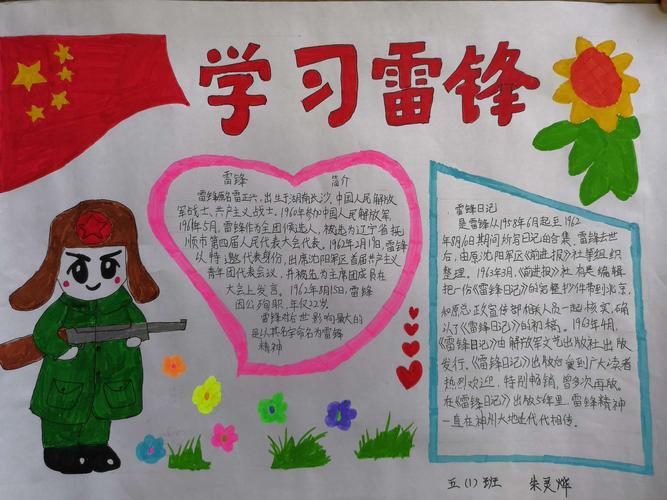 学习雷锋
雷锋 简介
雷锋原名雷正兴,出生于湖南长沙,中国人民解放
军战士,共产主义战士,1960年参加中国人民解放军,
1961年5月,雷锋作为全团候选人,被选为辽宁省抚
顺市第四届人民代表大会代表。1962年2月19日,雷锋
以特邀代表身份,出席沈阳军区首届共产主义
青年团代表会议,并被选为主席团成员在
大会上发言。1962年8月15日,雷锋
因公殉职,年仅22岁。
雷锋对后世影响最大的
是以其名字命名为雷锋
精神
雷锋日记
是雷锋从1958年6月起至1962
年8月6日期间所写日记的合集。雷锋去世
后,由原沈阳军区《前进报》社筹组织
整理。1963年3月,《前进报》社有是编辑
把一份《雷锋日记》的完整抄件带到北京,
和原总政宣传部相关人员一起核实,确
认了《雷锋日记》的初稿。1963年4月,
《雷锋日记》由解放军文艺出版社出版
发行。《雷锋日记》出版后受到广大读者
热烈欢迎,特别畅销,曾多次再版。
在《雷锋日记》出版5年里,雷锋精神
一直在神州大地代代相传。
五(1)班 朱灵烨